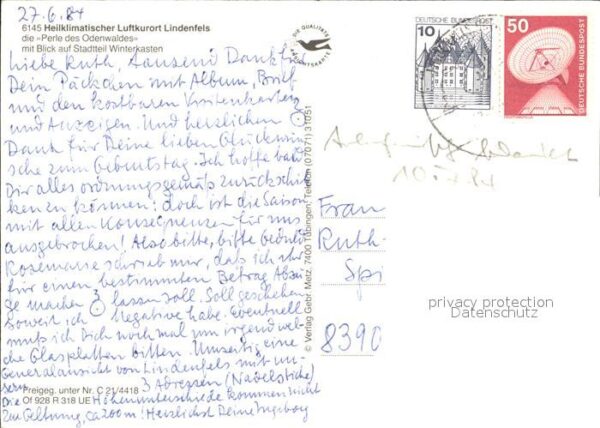 27.6.84
6145 Heilklimatischer Luftkurort Lindenfels
die »Perle des Odenwaldes«
mit Blick auf Stadtteil Winterkasten
Liebe Ruth, tausend Dank für
Dein Päckchen mit Album, Brief
und den kostbaren Visitenkarten
und Anzeigen. Und herzlichen
Dank für Deine lieben Glückwün-
sche zum Geburtstag. Ich hoffe bald
Dir alles ordnungsgemäß zurückschik-
ken zu können! doch ist die Saison
mit allen Konsequenzen für uns
ausgebrochen! Also bitte, bitte Geduld
Rosemarie schrieb mir, daß ich ihr
für einen bestimmten Betrag Abzü-
ge machen lassen soll. Soll geschehen
soweit ich Negative habe. Eventuell
muß ich Dich noch mal um irgend wel-
che Glasplatten bitten. Umseitig eine
Generalansicht von Lindenfels mit un-
sern 3 Adressen (Nadelstiche)
Die Höhenunterschiede kommen nicht
zur Geltung, ca 200m! Herzlichst Deine Ingeborg
Freigeg. unter Nr. C 21/4418
Of 928 R 318 UE
DIE QUALITÄTS
ANSICHTSKARTE
© Verlag Gebr. Metz, 7400 Tübingen, Telefon (07071) 31051
DEUTSCHE BUNDESPOST
10
50
DEUTSCHE BUNDESPOST
10.7.84
Frau
Ruth
Spi
8390
privacy protection
Datenschutz